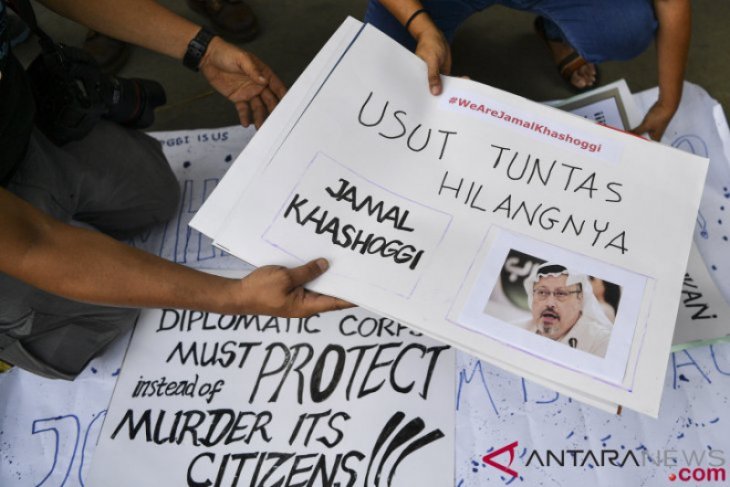 #WeAreJamalKhashoggi
USUT TUNTAS
HILANGNYA
JAMAL
KHASHOGGI
DIPLOMATIC CORPS
MUST PROTECT
instead of
MURDER ITS
CITIZENS!!!
ANTARANEWS
.com